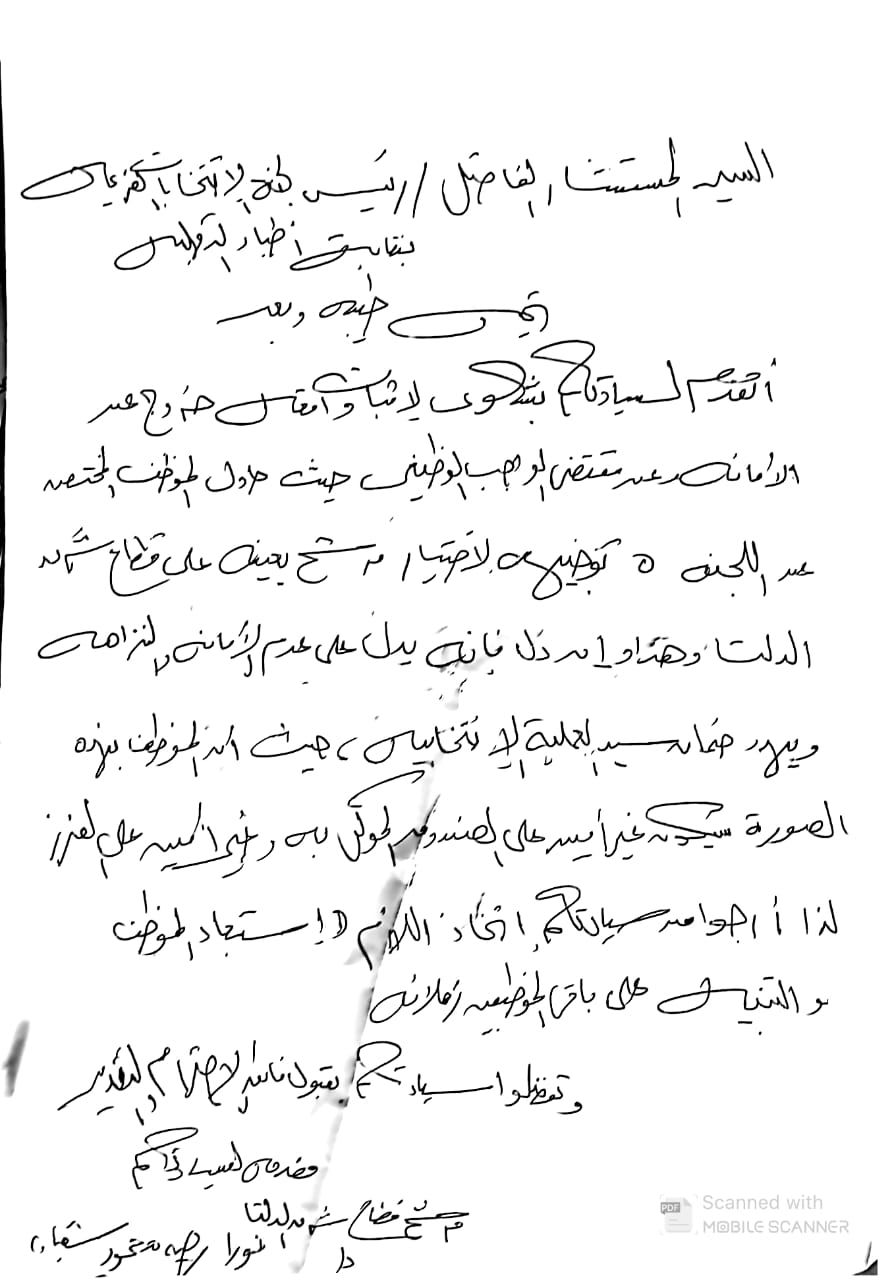 السيد المستشار الفاضل / رئيس لجنة الانتخابات الفرعية
بنقابة أطباء
تحية طيبة وبعد
أتقدم لسيادتكم بشكوى لإثبات واقعة خروج عن
الأمانة وعن مقتضى الواجب الوظيفي حيث حاول الموظف المختص
عن اللجنة توجيهي لاختيار مرشح بعينه على قطاع شمال
الدلتا وهذا وإن دل فإنه يدل على عدم الأمانة والنزاهة
ويهدر ضمانة سير العملية الانتخابية، حيث أن الموظف بهذه
الصورة سيكون غير أمين على الصندوق الموكل به وغير أمين على الفرز
لذا أرجوا من سيادتكم اتخاذ اللازم لاستبعاد الموظف
و التنبيه على باقي الموظفين زملائه
وتفضلوا سيادتكم بقبول فائق الاحترام والتقدير
مقدمه لسيادتكم
مرشح قطاع شمال الدلتا
د/ نورا محمود
Scanned with
MOBILE SCANNER
PDF